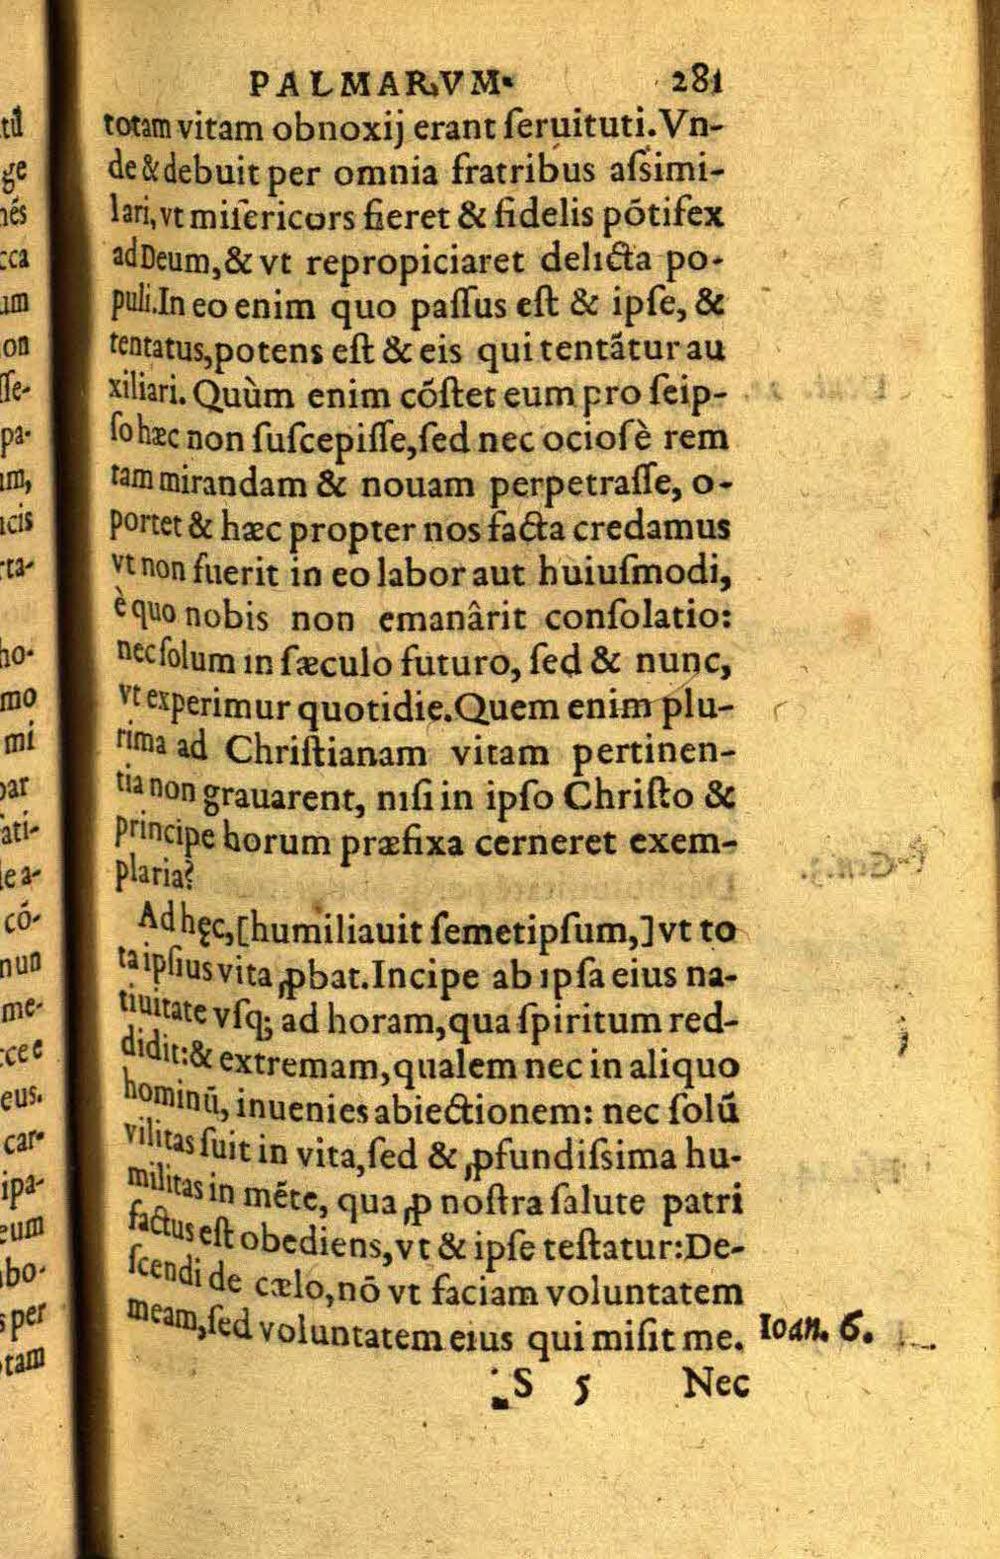 PALMARVM. 281
totam vitam obnoxij erant ſeruituti. Vn-
de & debuit per omnia fratribus aſsimi-
lari, vt miſericors fieret & fidelis põtifex
ad Deum, & vt repropiciaret delicta po-
puli. In eo enim quo paſſus eſt & ipſe, &
tentatus, potens eſt & eis qui tentãtur au
xiliari. Quùm enim cõſtet eum pro ſeip-
ſo hæc non ſuſcepiſſe, ſed nec ocioſè rem
tam mirandam & nouam perpetraſſe, o-
portet & hæc propter nos facta credamus
vt non fuerit in eo labor aut huiuſmodi,
è quo nobis non emanârit conſolatio:
nec ſolum in ſæculo futuro, ſed & nunc,
vt experimur quotidie. Quem enim plu-
rima ad Chriſtianam vitam pertinen-
tia non grauarent, niſi in ipſo Chriſto &
principe horum præfixa cerneret exem-
plaria?
Ad hęc, [humiliauit ſemetipſum,] vt to
ta ipſius vita ꝓbat. Incipe ab ipſa eius na-
tiuitate vſq; ad horam, qua ſpiritum red-
didit: & extremam, qualem nec in aliquo
hominũ, inuenies abiectionem: nec ſolũ
vilitas fuit in vita, ſed & ꝓfundiſsima hu-
militas in mẽte, qua ꝓ noſtra ſalute patri
factus eſt obediens, vt & ipſe teſtatur: De-
ſcendi de cælo, nõ vt faciam voluntatem
meam, ſed voluntatem eius qui miſit me. Ioan. 6.
S 5 Nec